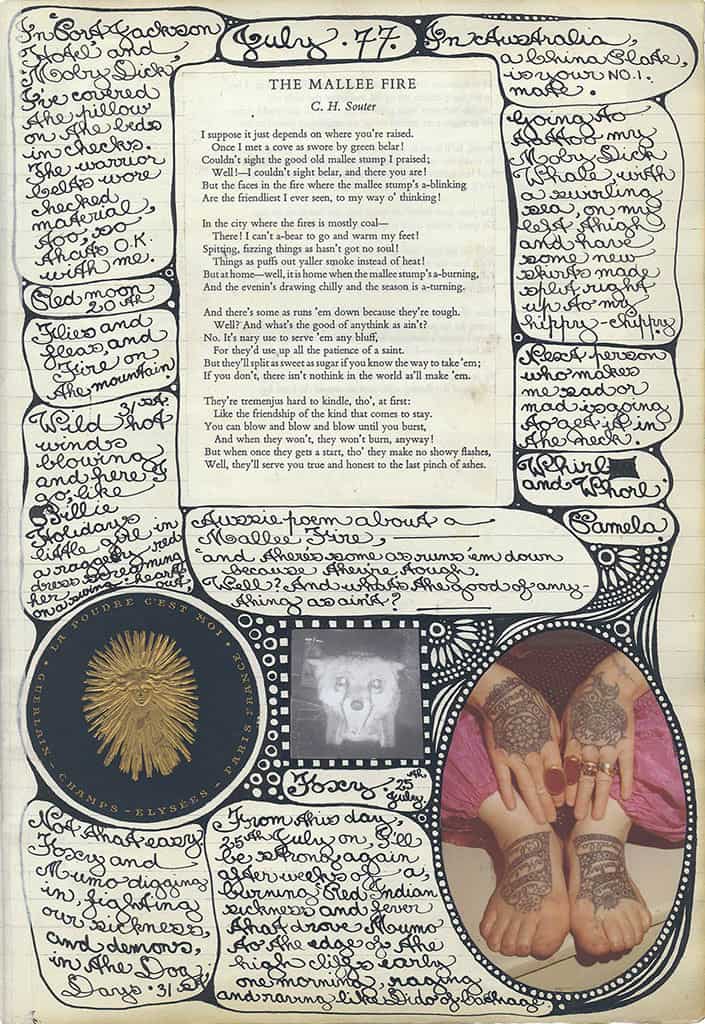 In Port Jackson
Hotel and
Moby Dick,
I've covered
the pillow
on the beds
in checks.
The warrior
belts wore
checked
material
too, so
that's O.K.
with me.
Red moon
20th
Flies and
fleas, and
Fire on
the mountain
31st.
Wild hot
winds
blowing
and here I
go like
Billie
Holidays
little girl in
a raggedy red
dress screaming
her heart out,
on a swing.
July. 77.
THE MALLEE FIRE
C. H. Souter
I suppose it just depends on where you're raised.
Once I met a cove as swore by green belar!
Couldn't sight the good old mallee stump I praised;
Well!—I couldn't sight belar, and there you are!
But the faces in the fire where the mallee stump's a-blinking
Are the friendliest I ever seen, to my way o' thinking!
In the city where the fires is mostly coal—
There! I can't a-bear to go and warm my feet!
Spitting, fizzing things as hasn't got no soul!
Things as puffs out yaller smoke instead of heat!
But at home—well, it is home when the mallee stump's a-burning,
And the evenin's drawing chilly and the season is a-turning.
And there's some as runs 'em down because they're tough.
Well? And what's the good of anythink as ain't?
No. It's nary use to serve 'em any bluff,
For they'd use up all the patience of a saint.
But they'll split as sweet as sugar if you know the way to take 'em;
If you don't, there isn't nothink in the world as'll make 'em.
They're tremenjus hard to kindle, tho', at first:
Like the friendship of the kind that comes to stay.
You can blow and blow and blow until you burst,
And when they won't, they won't burn, anyway!
But when once they gets a start, tho' they make no showy flashes,
Well, they'll serve you true and honest to the last pinch of ashes.
In Australia,
a China Plate,
is your NO.1.
mate.
Going to
tattoo my
Moby Dick
Whale, with
a swirling
sea, on my
left thigh
and have
some new
skirts made
split right
up to my
hippy-chippy
Next person
who makes
me sad or
mad is going
to get it in
the neck.
Whirl
and Whore
Pamela
Aussie poem about a
Mallee Fire,
"and there's some as runs 'em down
because they're tough.
Well? And what's the good of any-
thing as ain't?
LA POUDRE C'EST MOI
GUERLAIN - CHAMPS-ELYSÉES - PARIS - FRANCE
Foxy 25th
July.
Not that easy
Foxy and
Mumo digging
in, fighting
our sickness,
and demons,
in the Dog
Days. 31st
From this day,
25th July on, I'll
be strong again
after weeks of a
burning Red Indian
sickness and fever
that drove Mumo
to the edge of the
high cliffs early
one morning, raging
and raving like Dido of Carthage